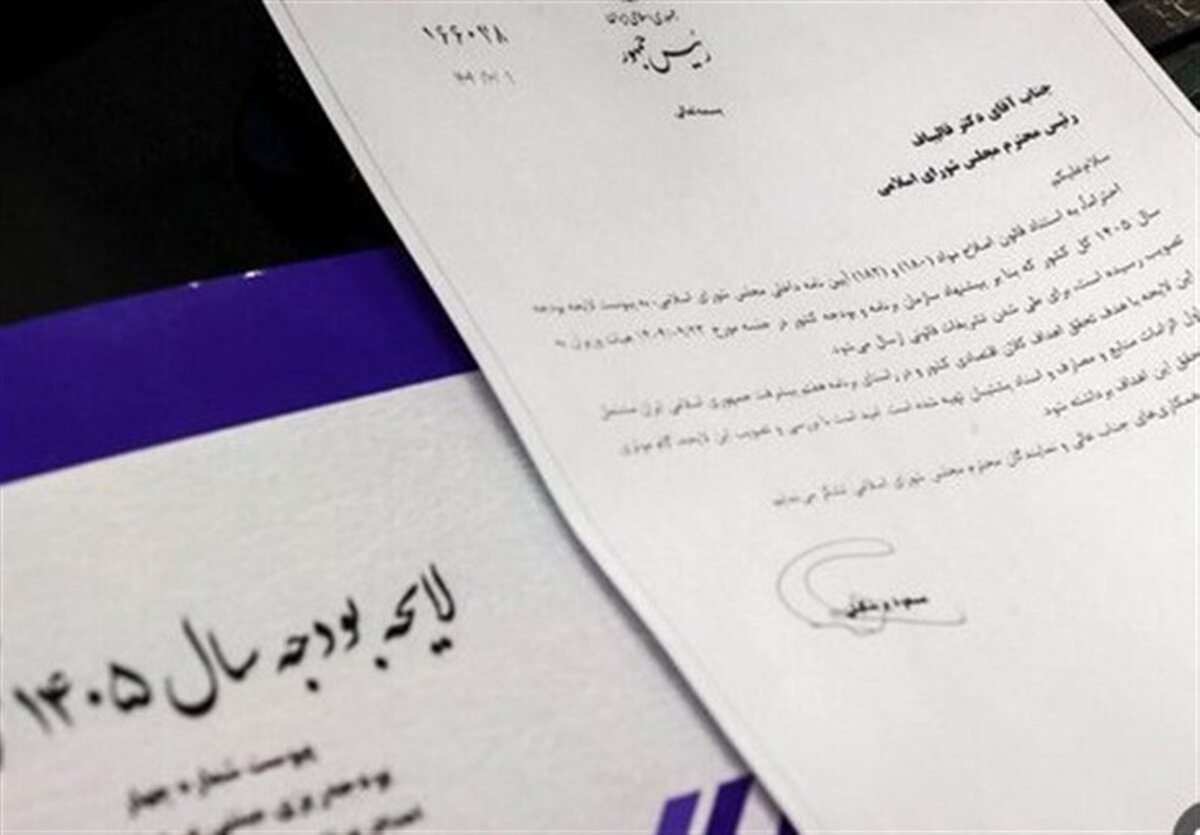 ۱۶۶۰۲۸
جمهوری اسلامی ایران
رئیس جمهور
بسمه‌تعالی
جناب آقای دکتر قالیباف
رئیس محترم مجلس شورای اسلامی
سلام‌علیکم
احتراماً؛ به استناد قانون اصلاح مواد (۱۸۰) و (۱۸۲) آیین نامه داخلی مجلس شورای اسلامی، به پیوست لایحه بودجه
سال ۱۴۰۵ کل کشور که بنا بر پیشنهاد سازمان برنامه و بودجه کشور در جلسه مورخ هیات وزیران به
تصویب رسیده است، برای طی شدن تشریفات قانونی ارسال می‌شود.
این لایحه با هدف تحقق اهداف کلان اقتصادی کشور و در راستای برنامه هفتم پیشرفت جمهوری اسلامی ایران مشتمل
الزامات منابع و مصارف و اسناد پشتیبان تهیه شده است. امید است با بررسی و تصویب این لایحه، گام موثری
این اهداف برداشته شود
همکاری‌های جناب عالی و نمایندگان محترم مجلس شورای اسلامی تشکر می‌نماید.
مسعود پزشکیان
لایحه بودجه سال ۱۴۰۵
پیوست شماره چهار